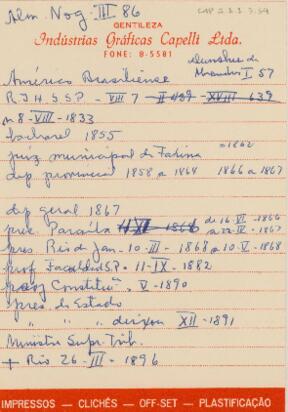 Alm. Nog. III 86
GENTILEZA
Indústrias Gráficas Capelli Ltda.
FONE: 8-5581
Dunshee de
Américo Brasiliense I 57
R I H S S P - VIII 7 - II 439 - XVIII 639
n 8-VIII-1833
bacharel 1855
juiz municipal de =1862
dep provincial 1858 a 1864 1866 a 1867
dep geral 1867
pres. Paraíba de 16-VI-1866
a 22-IV-1867
pres. Rio de Jan. 10-III-1868 a 10-V-1868
prof. Faculdad S.P. 11-IX-1882
Constitu V-1890
pres. do Estado
" " " XII-1891
Ministro Supr. Trib.
+ Rio 26-III-1896
IMPRESSOS — CLICHÊS — OFF-SET — PLASTIFICAÇÃO